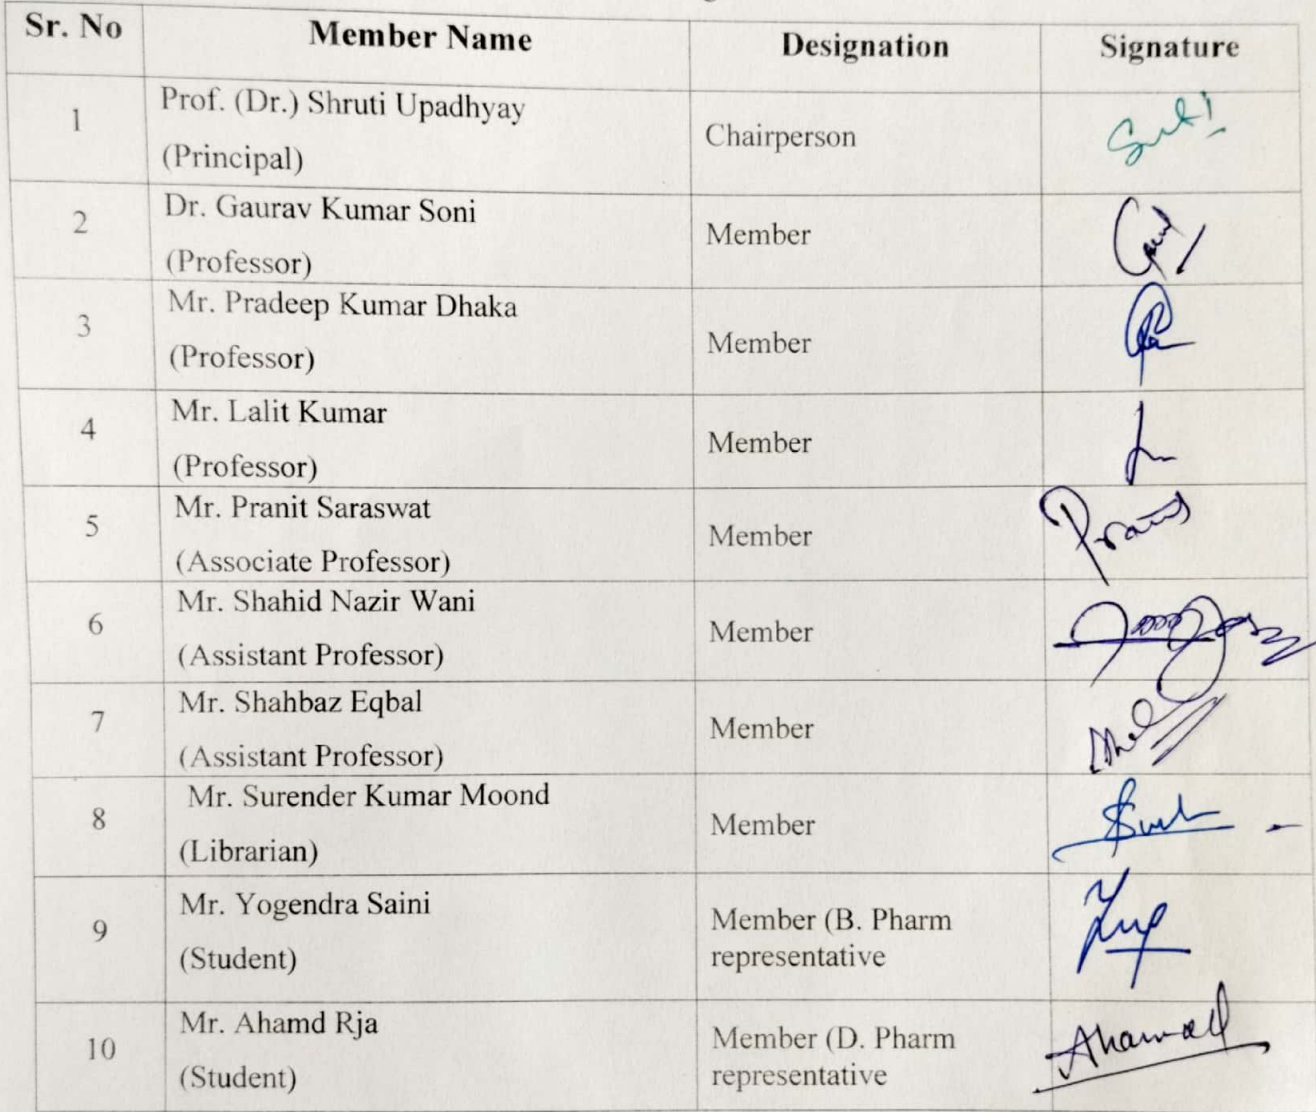 Sr. No Member Name Designation Signature
1 Prof. (Dr.) Shruti Upadhyay
(Principal) Chairperson
2 Dr. Gaurav Kumar Soni
(Professor) Member
3 Mr. Pradeep Kumar Dhaka
(Professor) Member
4 Mr. Lalit Kumar
(Professor) Member
5 Mr. Pranit Saraswat
(Associate Professor) Member
6 Mr. Shahid Nazir Wani
(Assistant Professor) Member
7 Mr. Shahbaz Eqbal
(Assistant Professor) Member
8 Mr. Surender Kumar Moond
(Librarian) Member
9 Mr. Yogendra Saini Member (B. Pharm
(Student) representative
10 Mr. Ahamd Rja Member (D. Pharm
(Student) representative
Ahamad